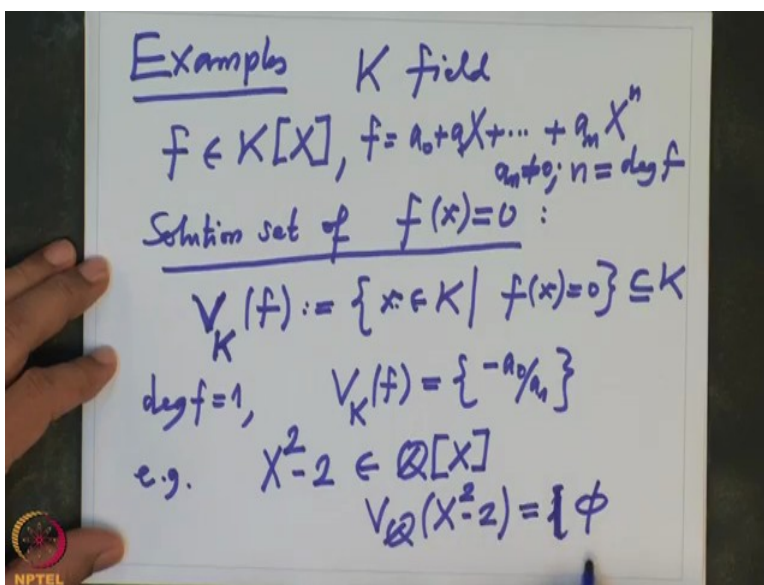 Examples K field
f ∈ K[X], f = a₀+a₁X+⋯+aₙXⁿ
aₙ≠0; n = deg f
Solution set of f(x)=0 :
V_K(f) := {x ∈ K | f(x)=0} ⊆ K
deg f = 1, V_K(f) = {-a₀/a₁}
e.g. X²-2 ∈ ℚ[X]
V_ℚ(X²-2) = { ϕ
NPTEL